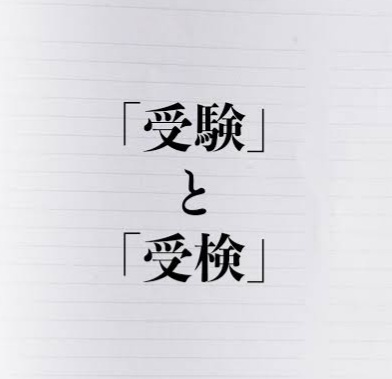 「受験」
と
「受検」